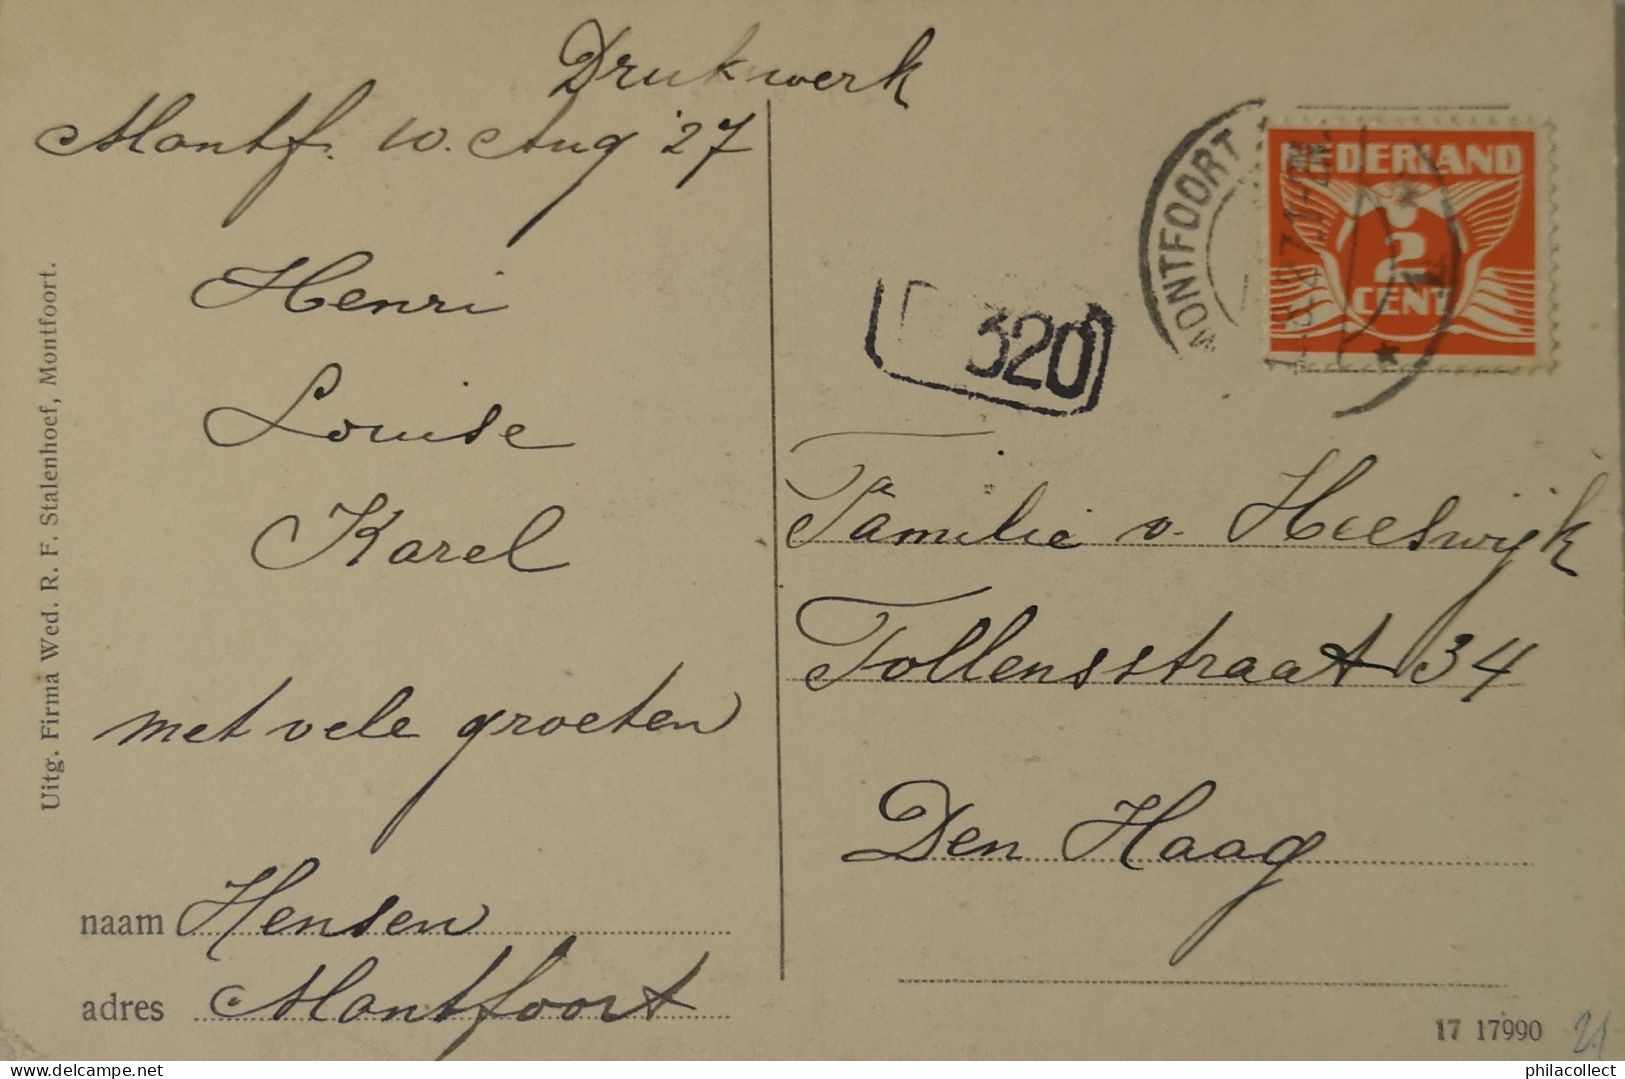 Drukwerk
Montf. 10. Aug '27
Henri
Louise
Karel
met vele groeten
naam Hensen
adres Montfoort
Uitg. Firma Wed. R. F. Stalenhoef, Montfoort.
MONTFOORT
NEDERLAND
2
CENT
320
Familie v. Heeswijk
Tollensstraat 34
Den Haag
17 17990
21
delcampe.net
philacollect